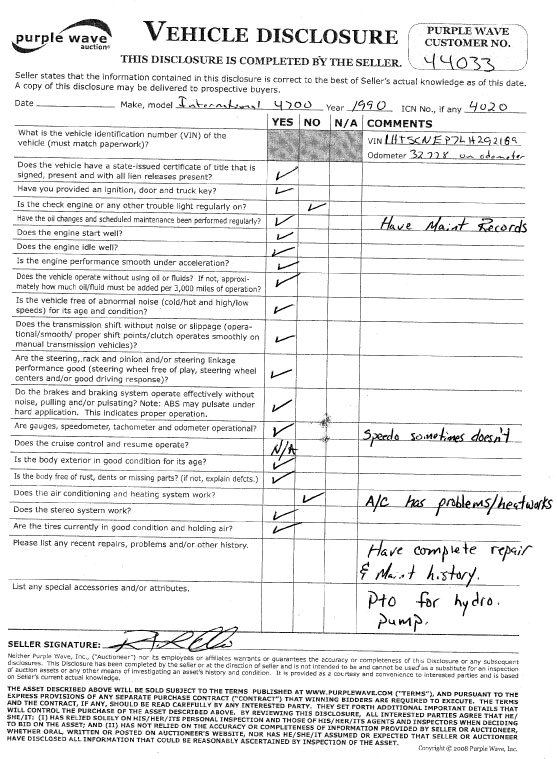 purple wave
auction®
VEHICLE DISCLOSURE
THIS DISCLOSURE IS COMPLETED BY THE SELLER.
PURPLE WAVE
CUSTOMER NO.
44033
Seller states that the information contained in this disclosure is correct to the best of Seller's actual knowledge as of this date.
A copy of this disclosure may be delivered to prospective buyers.
Date Make, model International 4700 Year 1990 ICN No., if any 4020
YES NO N/A COMMENTS
What is the vehicle identification number (VIN) of the
vehicle (must match paperwork)?
VIN 1HTSCNEP7LH292169
Odometer 32778 on odometer
Does the vehicle have a state-issued certificate of title that is
signed, present and with all lien releases present? ✓
Have you provided an ignition, door and truck key? ✓
Is the check engine or any other trouble light regularly on? ✓
Have the oil changes and scheduled maintenance been performed regularly? ✓ Have Maint Records
Does the engine start well? ✓
Does the engine idle well? ✓
Is the engine performance smooth under acceleration? ✓
Does the vehicle operate without using oil or fluids? If not, approxi-
mately how much oil/fluid must be added per 3,000 miles of operation? ✓
Is the vehicle free of abnormal noise (cold/hot and high/low
speeds) for its age and condition? ✓
Does the transmission shift without noise or slippage (opera-
tional/smooth/ proper shift points/clutch operates smoothly on
manual transmission vehicles)? ✓
Are the steering, rack and pinion and/or steering linkage
performance good (steering wheel free of play, steering wheel
centers and/or good driving response)? ✓
Do the brakes and braking system operate effectively without
noise, pulling and/or pulsating? Note: ABS may pulsate under
hard application. This indicates proper operation. ✓
Are gauges, speedometer, tachometer and odometer operational? ✓ Speedo sometimes doesn't
Does the cruise control and resume operate? N/A
Is the body exterior in good condition for its age? ✓
Is the body free of rust, dents or missing parts? (if not, explain defcts.) ✓
Does the air conditioning and heating system work? ✓ A/C has problems/heat works
Does the stereo system work? ✓
Are the tires currently in good condition and holding air? ✓
Please list any recent repairs, problems and/or other history. Have complete repair
& Maint history.
List any special accessories and/or attributes. Pto for hydro.
pump.
SELLER SIGNATURE:
Neither Purple Wave, Inc., ("Auctioneer") nor its employees or affiliates warrants or guarantees the accuracy or completeness of this Disclosure or any subsequent
disclosures. This Disclosure has been completed by the seller or at the direction of seller and is not intended to be and cannot be used as a substitute for an inspection
of auction assets or any other means of investigating an asset's history and condition. It is provided as a courtesy and convenience to interested parties and is based
on Seller's current actual knowledge.
THE ASSET DESCRIBED ABOVE WILL BE SOLD SUBJECT TO THE TERMS PUBLISHED AT WWW.PURPLEWAVE.COM ("TERMS"), AND PURSUANT TO THE
EXPRESS PROVISIONS OF ANY SEPARATE PURCHASE CONTRACT ("CONTRACT") THAT WINNING BIDDERS ARE REQUIRED TO EXECUTE. THE TERMS
AND THE CONTRACT, IF ANY, SHOULD BE READ CAREFULLY BY ANY INTERESTED PARTY. THEY SET FORTH ADDITIONAL IMPORTANT DETAILS THAT
WILL CONTROL THE PURCHASE OF THE ASSET DESCRIBED ABOVE. BY REVIEWING THIS DISCLOSURE, ALL INTERESTED PARTIES AGREE THAT HE/
SHE/IT: (I) HAS RELIED SOLELY ON HIS/HER/ITS PERSONAL INSPECTION AND THOSE OF HIS/HER/ITS AGENTS AND INSPECTORS WHEN DECIDING
TO BID ON THE ASSET; AND (II) HAS NOT RELIED ON THE ACCURACY OR COMPLETENESS OF INFORMATION PROVIDED BY SELLER OR AUCTIONEER,
WHETHER ORAL, WRITTEN OR POSTED ON AUCTIONEER'S WEBSITE, NOR HAS HE/SHE/IT ASSUMED OR EXPECTED THAT SELLER OR AUCTIONEER
HAVE DISCLOSED ALL INFORMATION THAT COULD BE REASONABLY ASCERTAINED BY INSPECTION OF THE ASSET.
Copyright © 2008 Purple Wave, Inc.